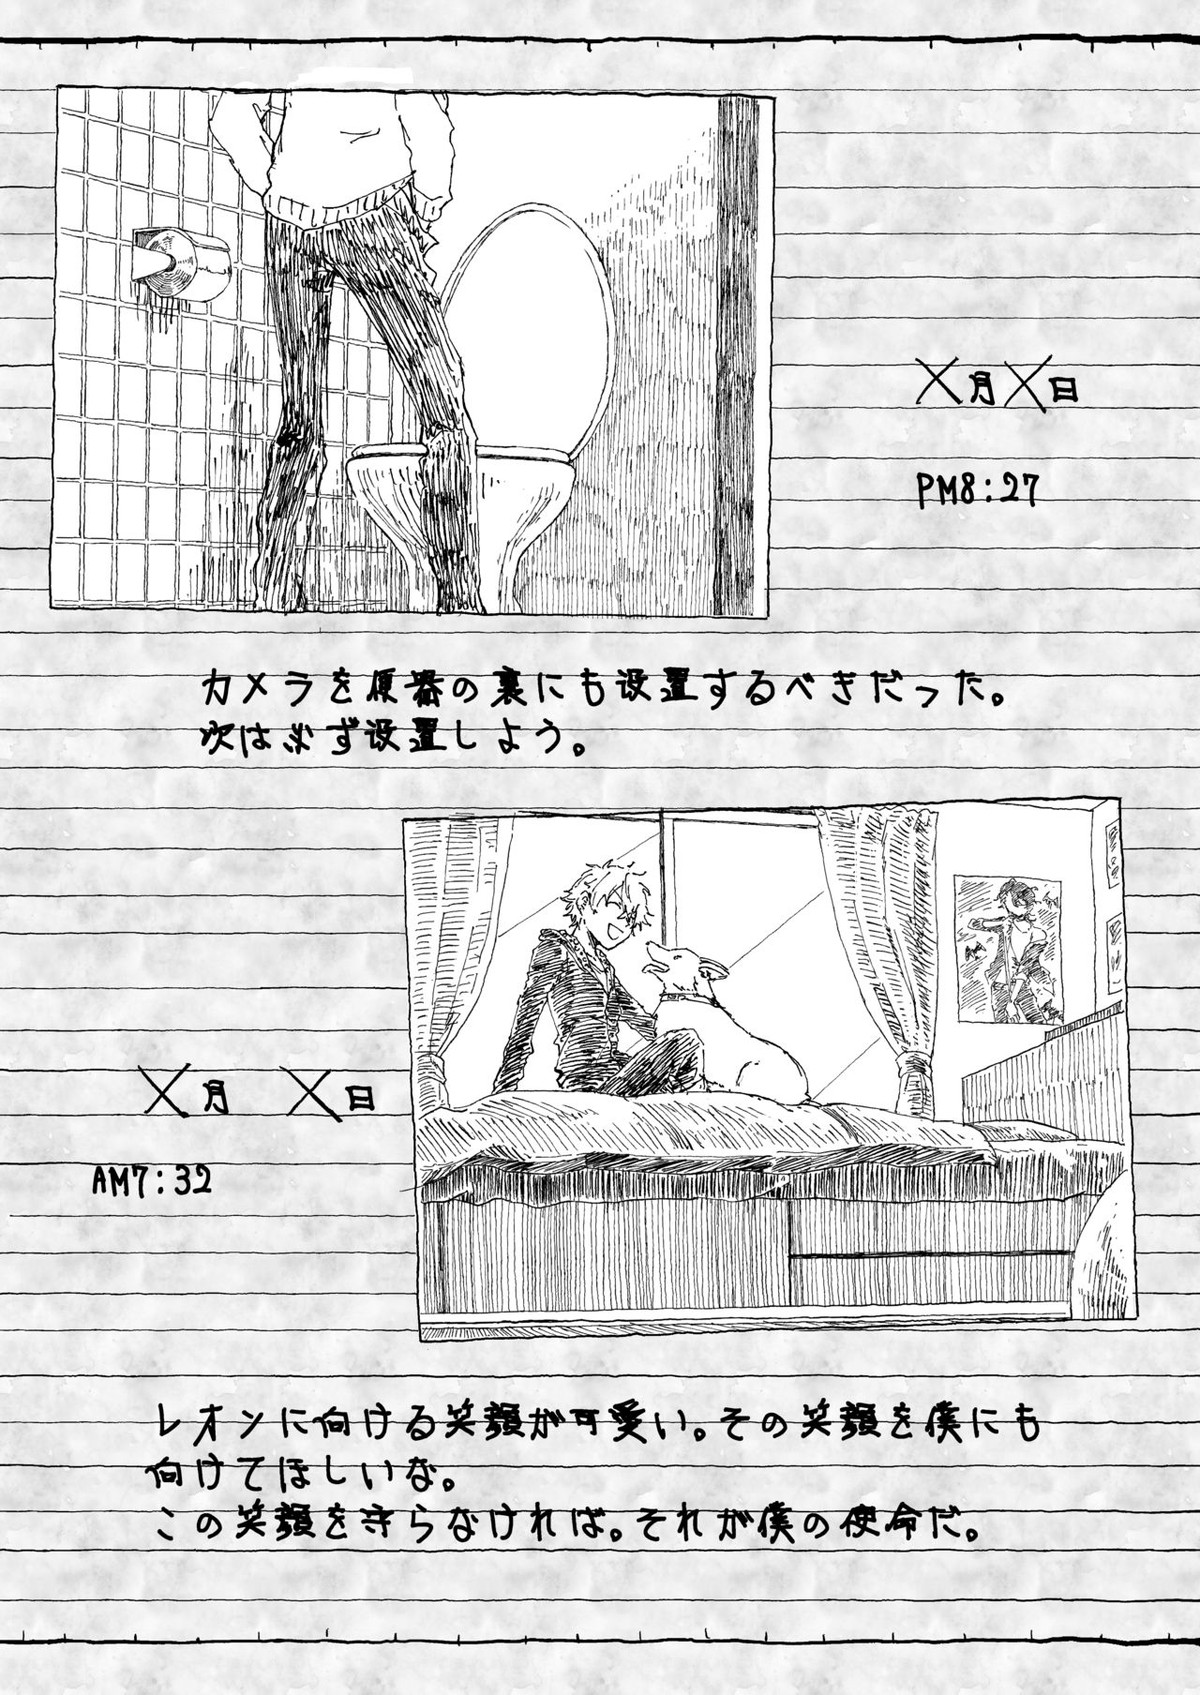 X月X日
PM8:27
カメラを便器の裏にも設置するべきだった。
次は必ず設置しよう。
X月 X日
AM7:32
レオンに向ける笑顔が可愛い。その笑顔を僕にも
向けてほしいな。
この笑顔を守らなければ。それが僕の使命だ。